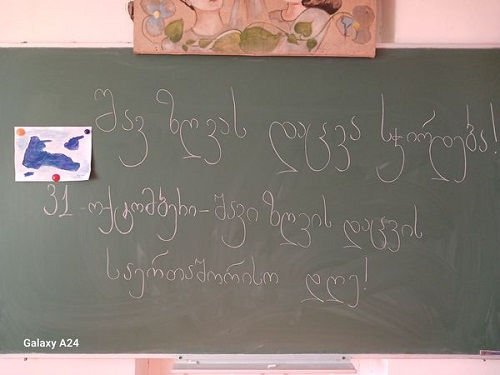 შავ ზღვას დაცვა სჭირდება!
31 ოქტომბერი - შავი ზღვის დაცვის
საერთაშორისო დღე!
Galaxy A24